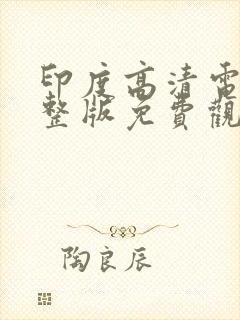 印度高清電
整版免費觀
陶良辰